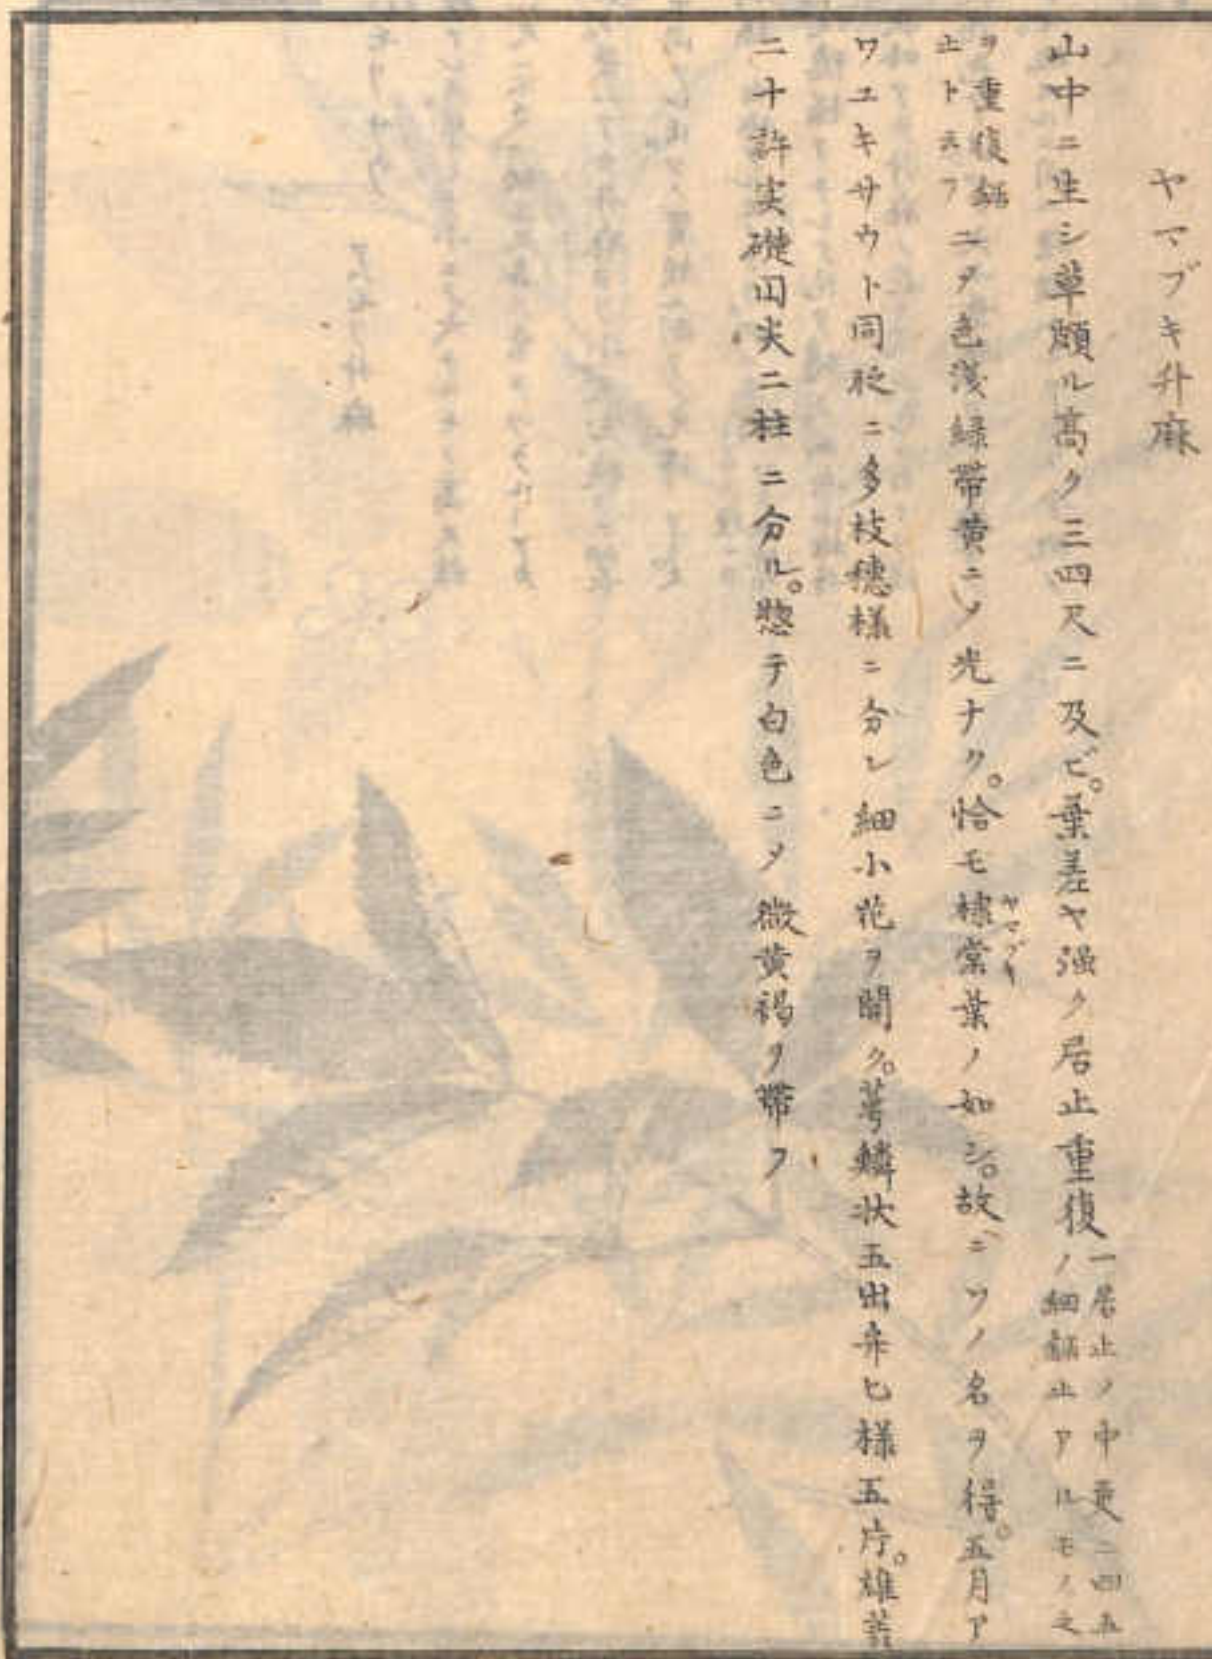 ヤマブキ升麻
山中ニ生シ草頗ル高ク三四尺ニ及ビ。葉差ヤ强ク居止重復一居止ノ中更ニ四五ノ細齬止アルモノ之
ヲ重復齬止ト云フニヿ色淺緑帯黄ニ乄光ナク。恰モ棣棠葉ノ如シ。故ニソノ名ヲ得。五月ア
ワユキサウト同㸃ニ多枝穗様ニ分レ細小花ヲ開ク。萼鱗状五出弁匕様五片。雄蕋
二十許実礎円尖二柱ニ分ル。惣テ白色ニ乄微黄褐ヲ帯フ